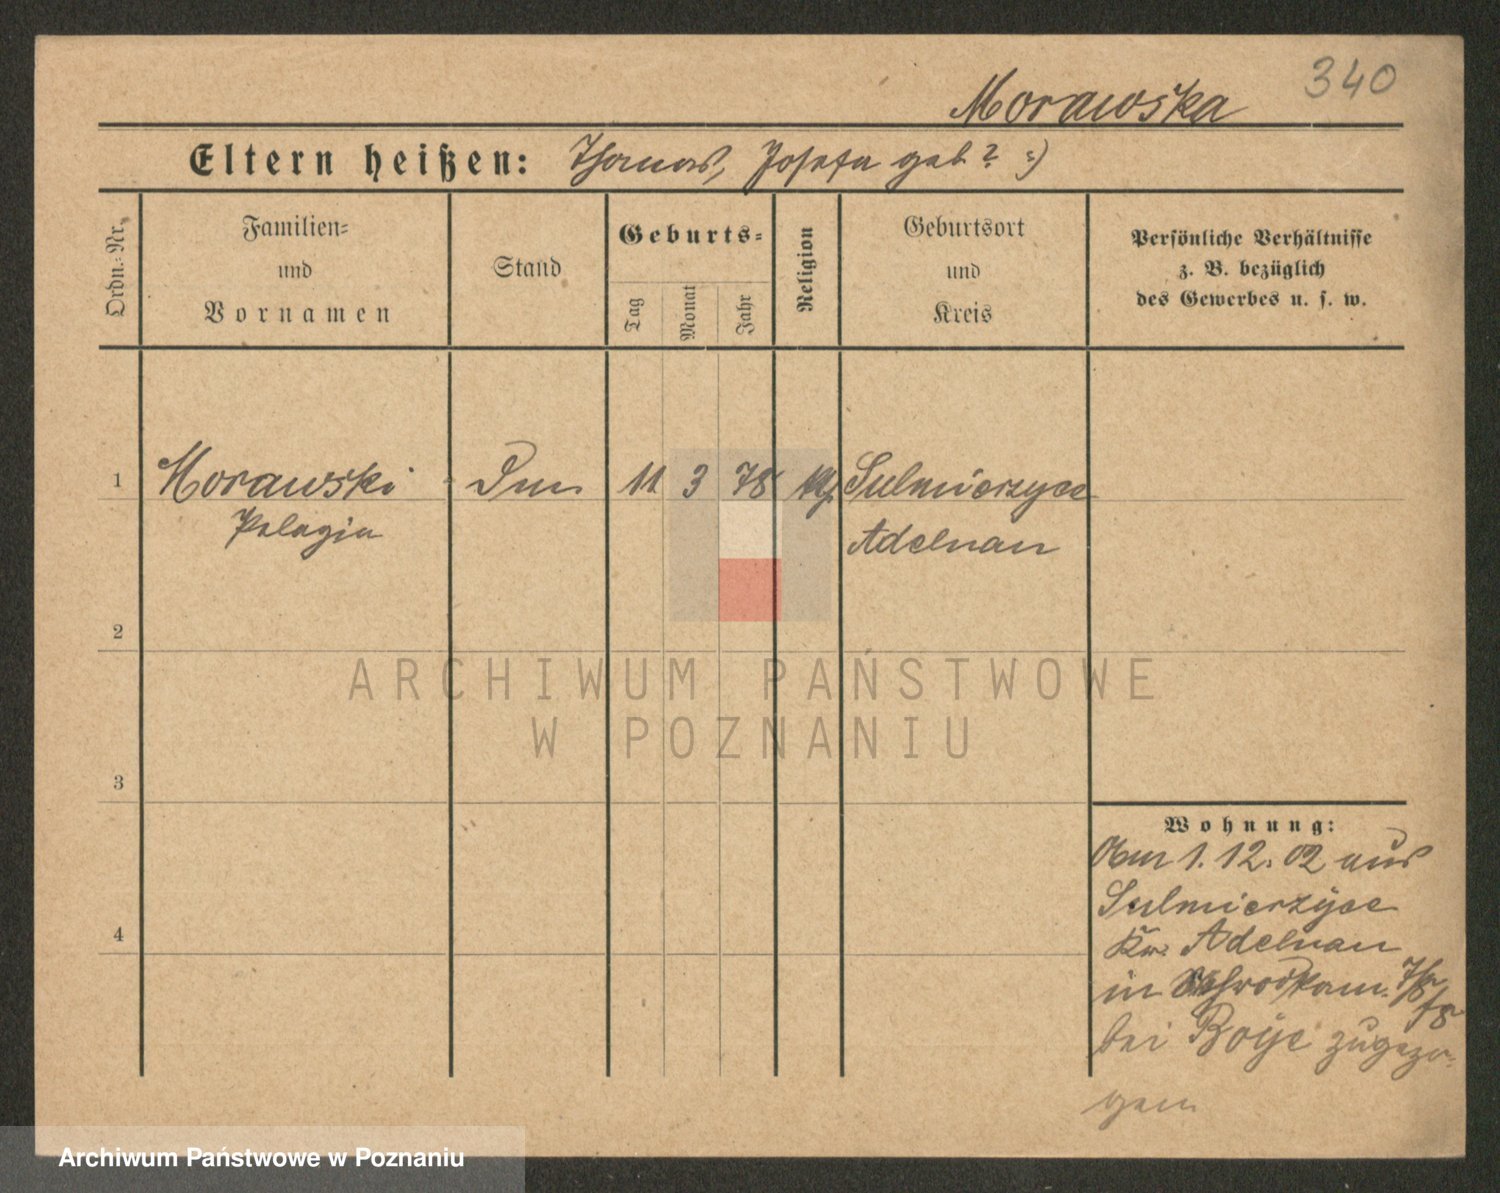 340
Morawska
Eltern heißen: Thomas, Josefa geb ? :)
Ordn.-Nr.
Familien-
und
Vornamen
Stand
Geburts-
Tag
Monat
Jahr
Religion
Geburtsort
und
Kreis
Persönliche Verhältnisse
z. B. bezüglich
des Gewerbes u. s. w.
1 Morawski 11 3 78 Sulmierzyce
Pelagia Adelnau
2
ARCHIWUM PAŃSTWOWE
W POZNANIU
3
Wohnung:
Am 1. 12. 02 aus
Sulmierzyce
4
Kr. Adelnau
in
bei Boye zugezo-
gen
Archiwum Państwowe w Poznaniu